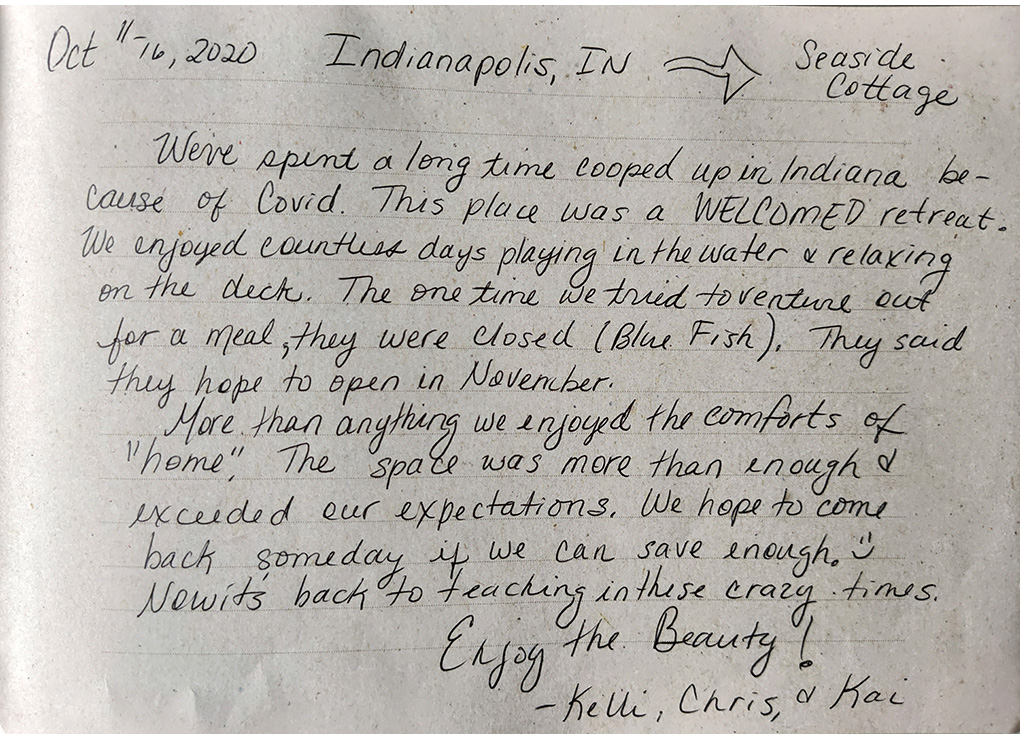 Oct 11-16, 2020 Indianapolis, IN → Seaside Cottage
We've spent a long time cooped up in Indiana be-
cause of Covid. This place was a WELCOMED retreat.
We enjoyed countless days playing in the water & relaxing
on the deck. The one time we tried to venture out
for a meal, they were closed (Blue Fish). They said
they hope to open in November.
More than anything we enjoyed the comforts of
"home". The space was more than enough &
exceeded our expectations. We hope to come
back someday if we can save enough. :)
Now it's back to teaching in these crazy times.
Enjoy the Beauty!
-Kelli, Chris, & Kai